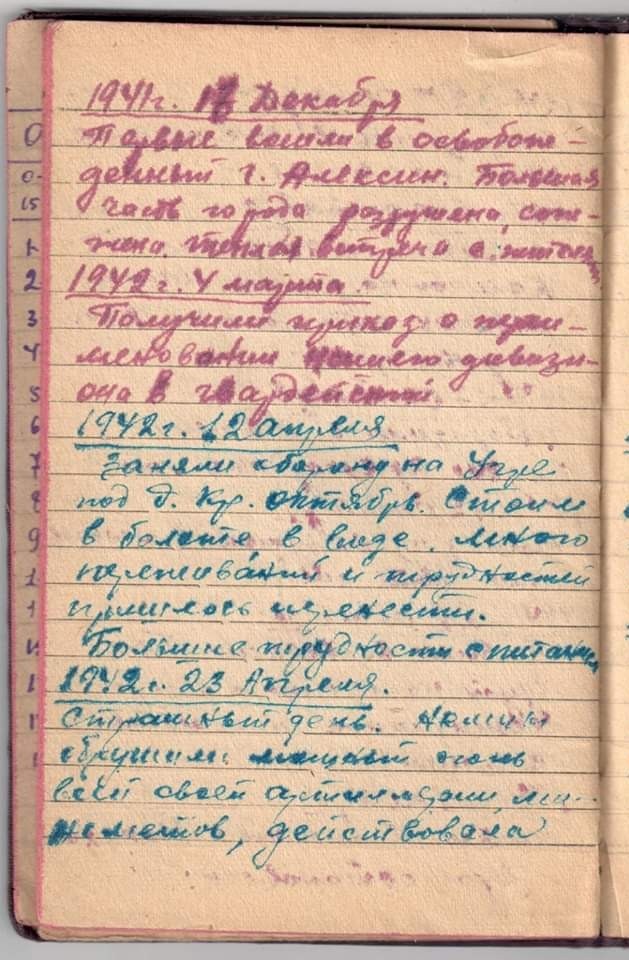 1941г. 17 Декабря
Первые вошли в освобож-
денный г. Алексин. Большая
часть города разрушена, сож-
жена. Теплая встреча с жителями.
1942г. 4 марта.
Получили приказ о переи-
меновании нашего дивизи-
она в гвардейский
1942г. 12 апреля
Заняли оборону на Угре
под д. Кр. октябрь. Стоим
в болоте в воде. Много
переживаний и трудностей
пришлось перенести.
Большие трудности с питанием
1942г. 23 Апреля.
Страшный день. Немцы
обрушили мощный огонь
всей своей артиллерии, ми-
нометов, действовала
0
0-
15
1
2
3
4
5
6
7
8
9
1
1
1
1
1